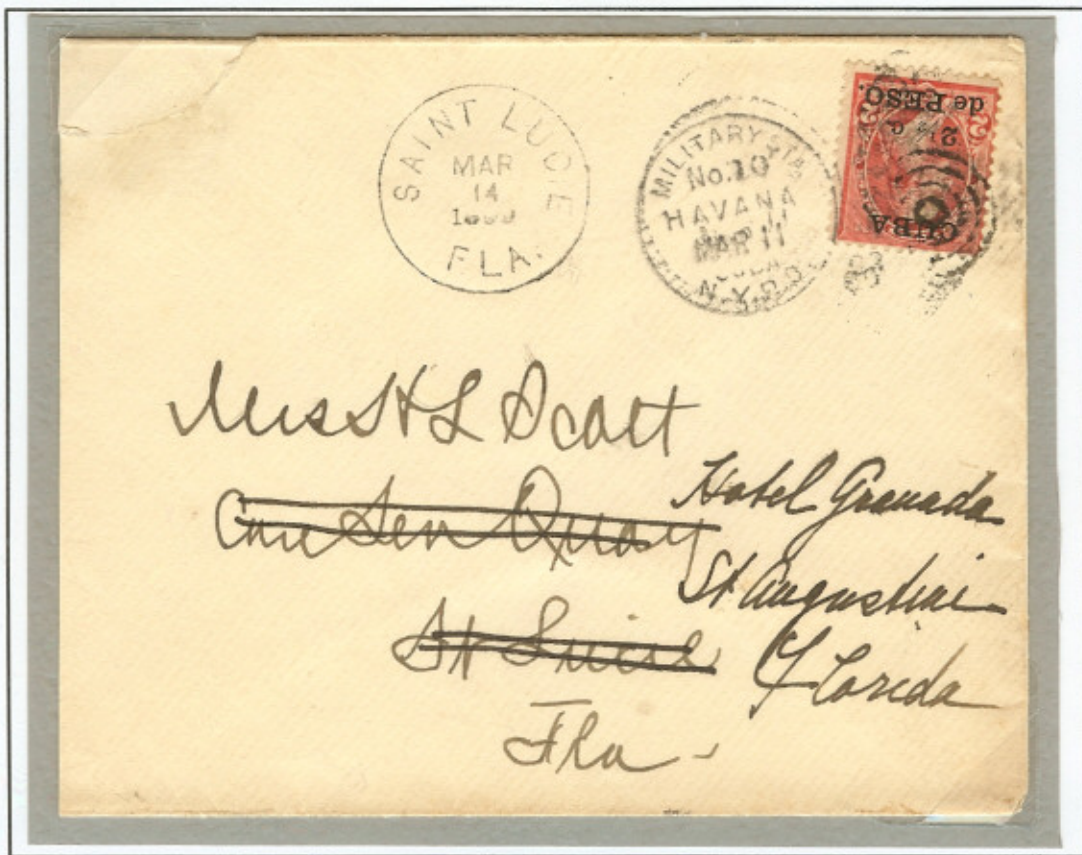 SAINT LUCIE
MAR
14
FLA.
MILITARY STA.
No. 10
HAVANA
MAR 11
CUBA
N.Y.P.O.
CUBA
2½ c.
de PESO.
2
Mrs H L Scott
Care Sen Quay
St Lucie
Fla -
Hotel Granada
St Augustine
Florida